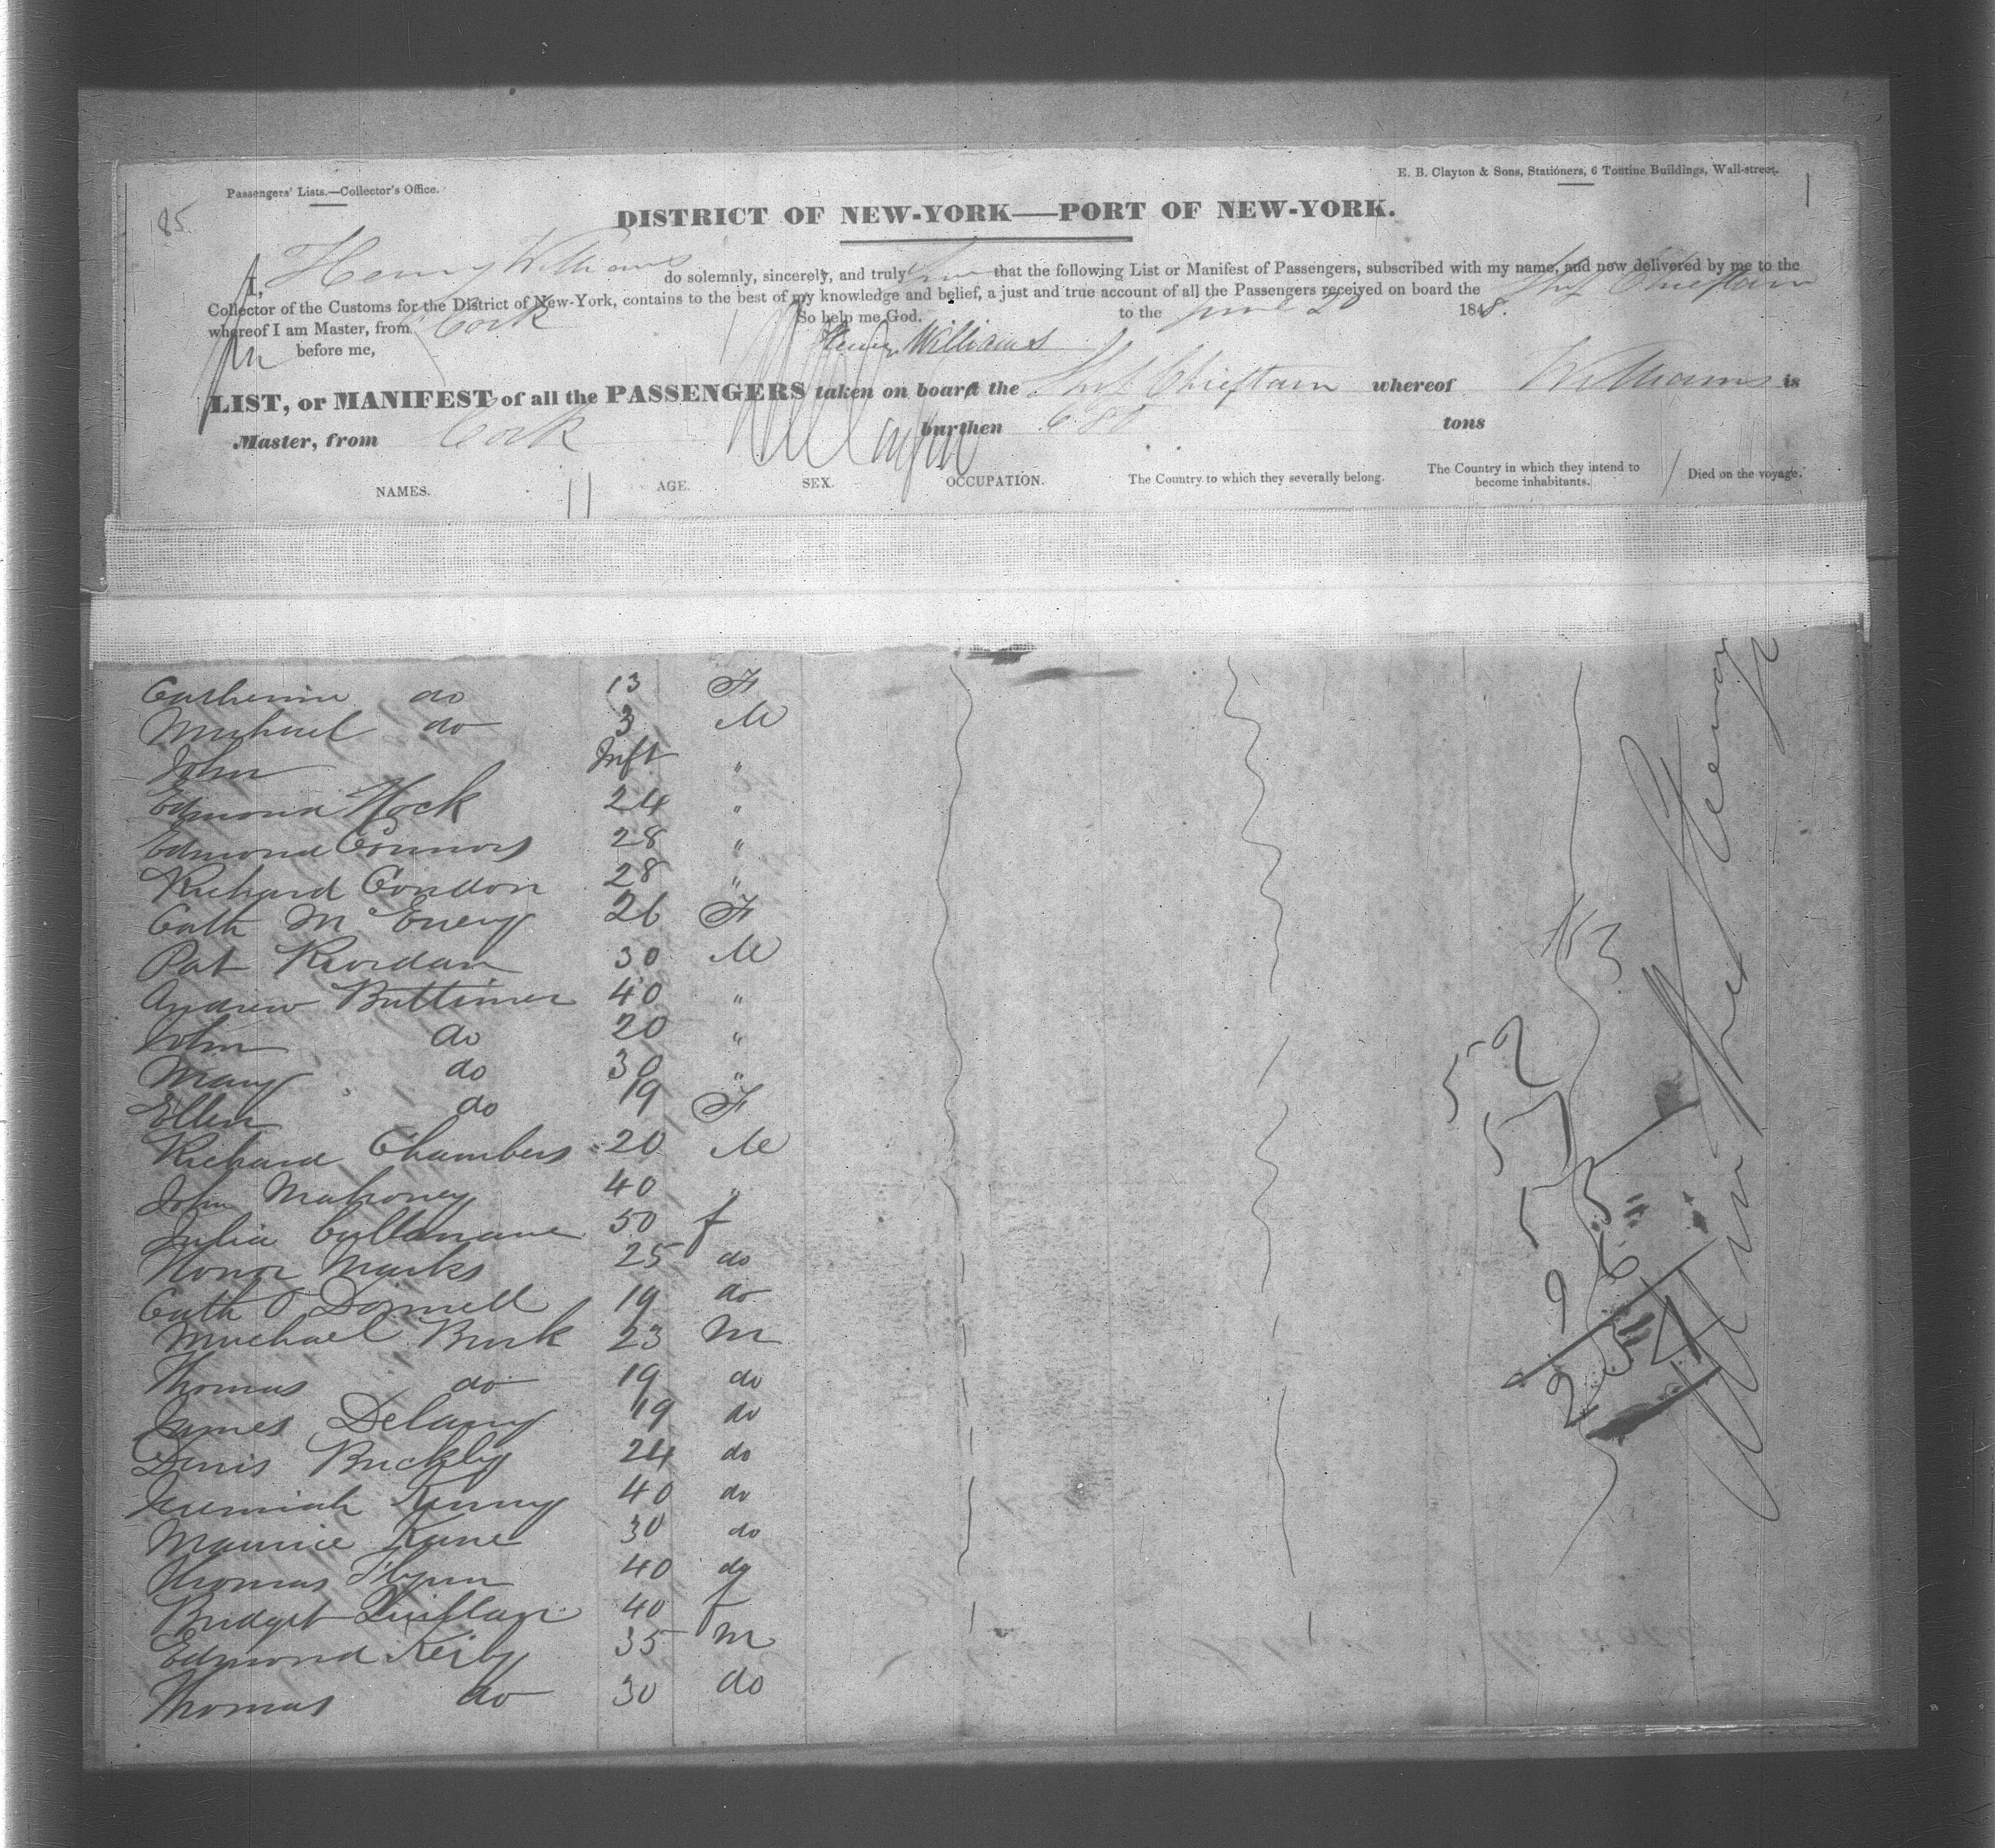 Passengers' Lists.—Collector's Office.
E. B. Clayton & Sons, Stationers, 6 Tontine Buildings, Wall-street.
85
DISTRICT OF NEW-YORK—PORT OF NEW-YORK.
I, Henry Williams do solemnly, sincerely, and truly that the following List or Manifest of Passengers, subscribed with my name, and now delivered by me to the
Collector of the Customs for the District of New-York, contains to the best of my knowledge and belief, a just and true account of all the Passengers received on board the Ship Chieftain
whereof I am Master, from Cork to the June 20 1848.
So help me God.
before me, Henry Williams
LIST, or MANIFEST of all the PASSENGERS taken on board the Ship Chieftain whereof Williams is
Master, from Cork burthen 680 tons
NAMES. AGE. SEX. OCCUPATION. The Country to which they severally belong. The Country in which they intend to become inhabitants. Died on the voyage.
Catherine do 13 F
Michael do 3 M
John Inft "
Edmond Hock 24 "
Edmond Connors 28 "
Richard Condon 28 "
Cath McEnery 26 F
Pat Riordan 30 M
Andrew Buttimer 40 "
John do 20 "
Mary do 30 "
Ellen do 19 F
Richard Chambers 20 M
John Mahoney 40 "
Julia Cullanane 50 f
Honor Marks 25 do
Cath O Donnell 19 do
Michael Burk 23 m
Thomas do 19 do
James Delany 19 do
Denis Buckly 24 do
Jeremiah Kenny 40 do
Maurice Kane 30 do
Thomas Flynn 40 do
Bridget Quillan 40 f
Edmond Keily 35 m
Thomas do 30 do
52
53